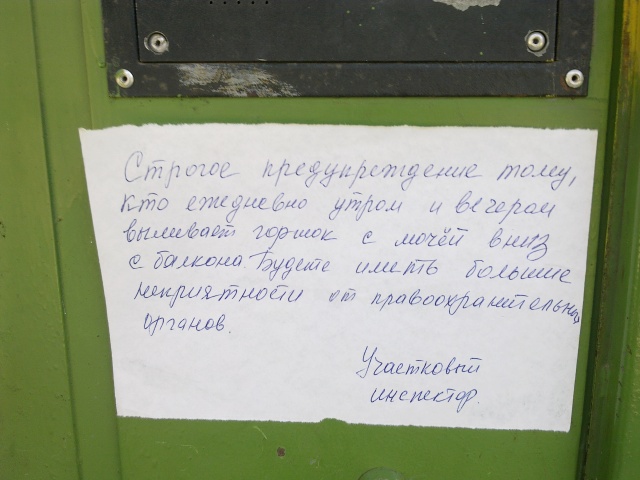 Строгое предупреждение тому,
кто ежедневно утром и вечером
выливает горшок с мочёй вниз
с балкона. Будете иметь большие
неприятности от правоохранительных
органов.
Участковый
инспектор.